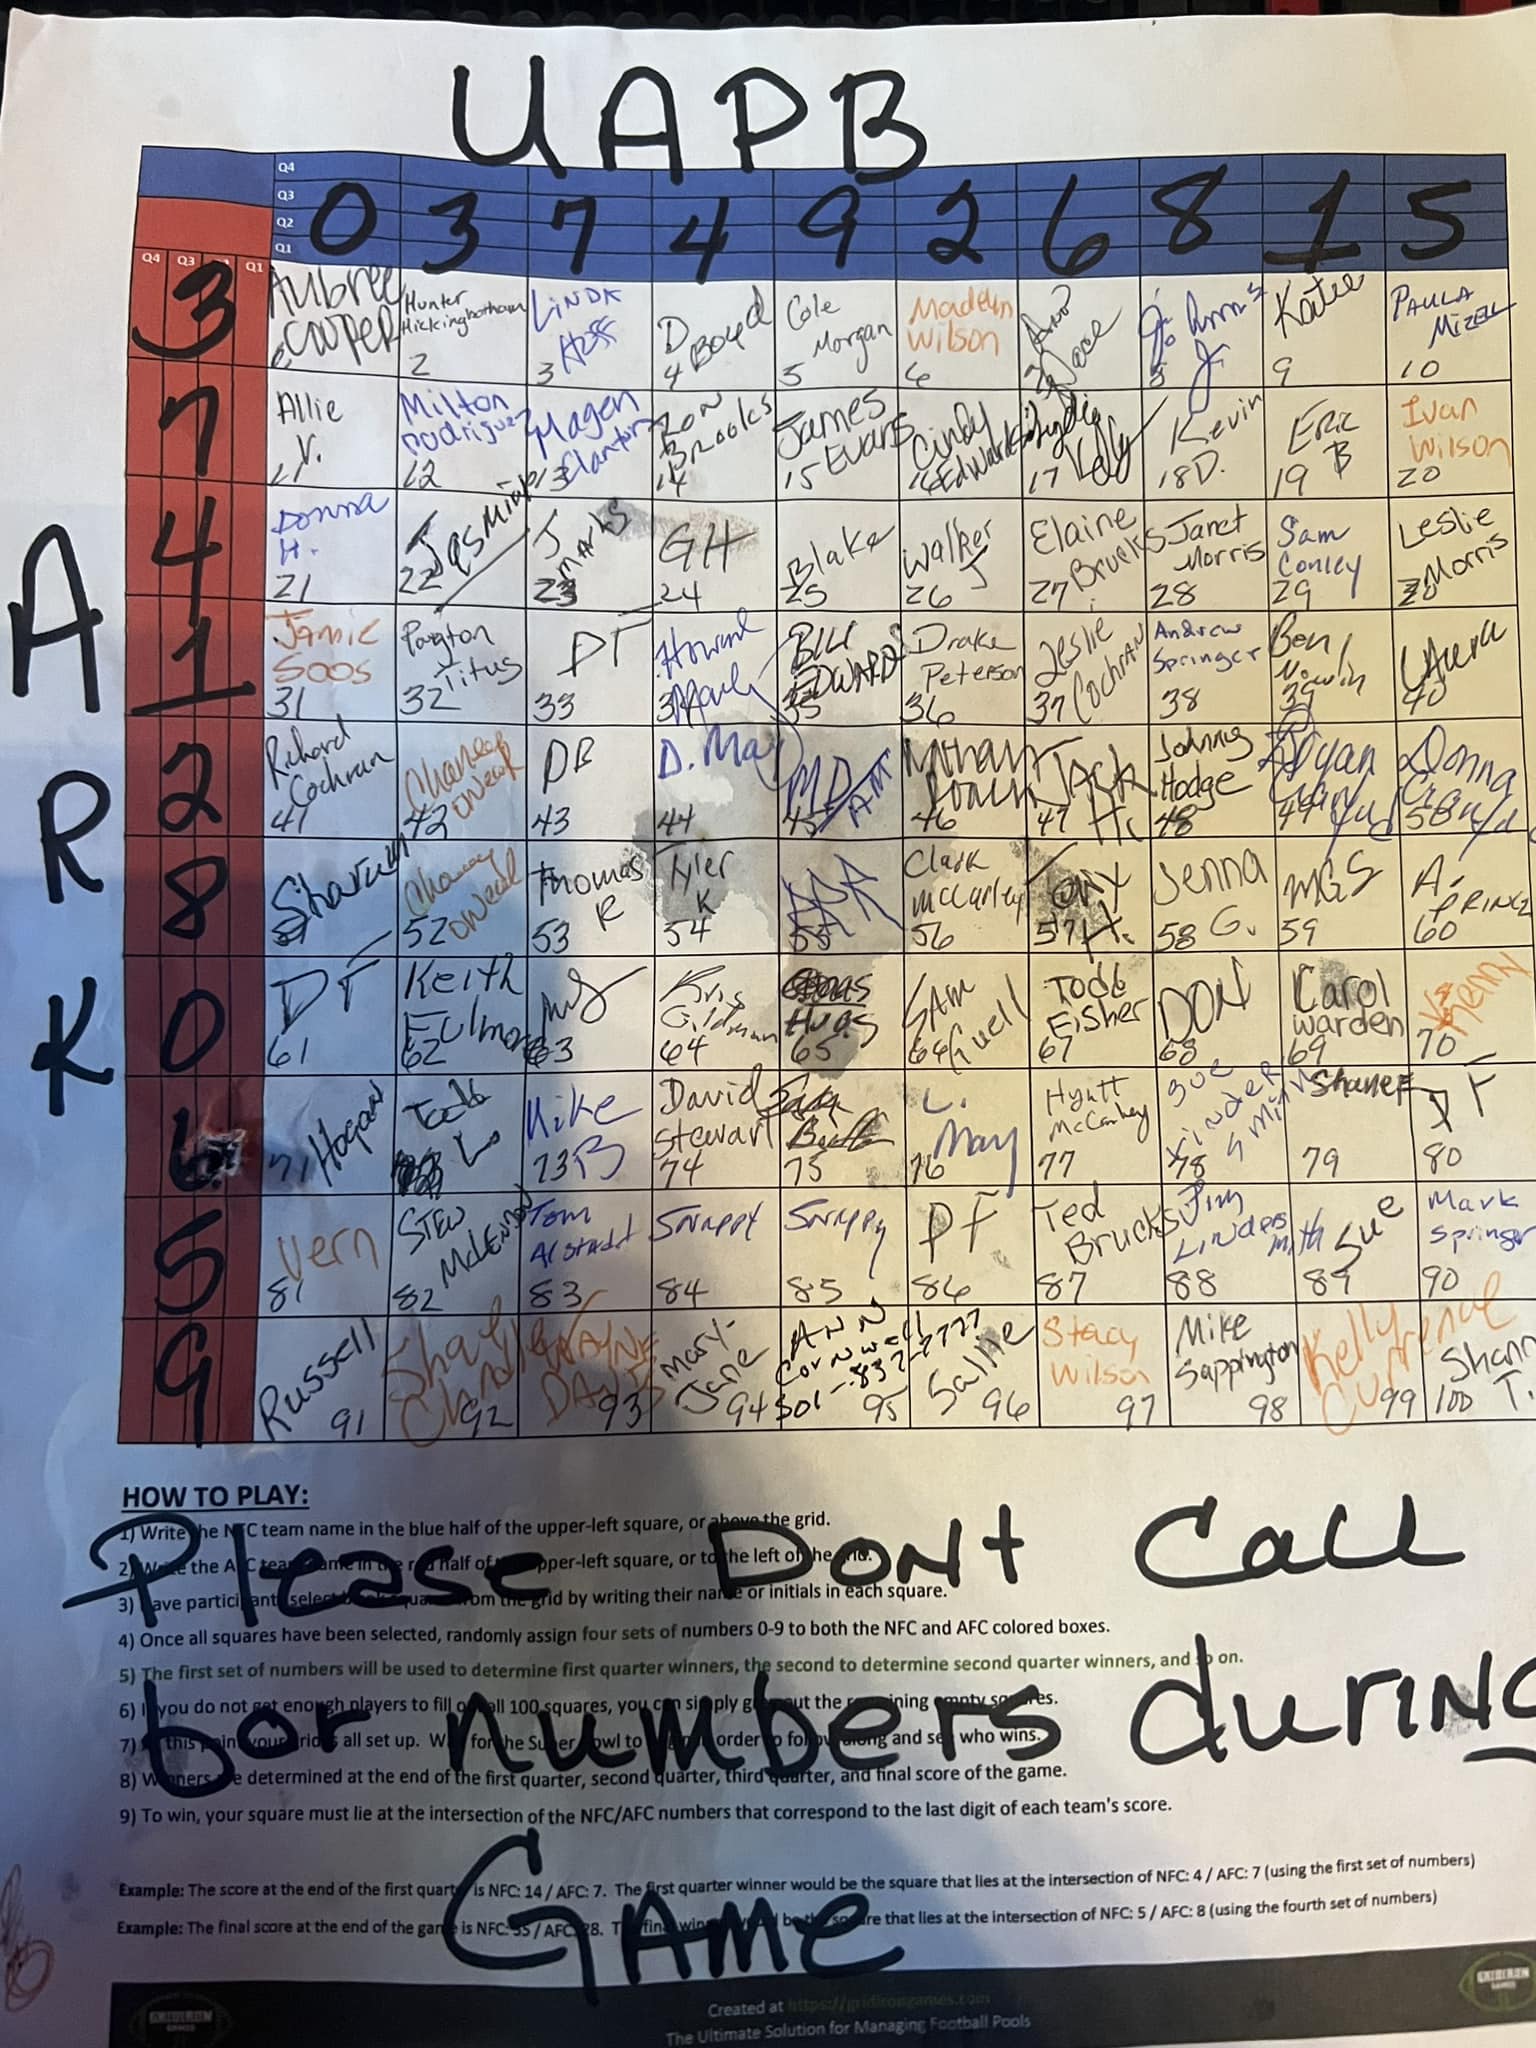 UAPB
Q4
Q3
Q2
Q1
0 3 7 4 9 2 6 8 1 5
Q4 Q3 Q1
ARK
3
Aubree Cooper
Hunter Hickingbotham 2
LINDA Huff 3
D Boyd 4
Cole Morgan 5
Madelyn Wilson 6
Katie 9
PAULA MIZELL 10
7
Allie V. 11
Milton Rodriguez 12
Magen Clanton 13
RON Brooks 14
James Evans 15
Cindy Edwards 16
Kelly 17
Kevin D. 18
ERIC B 19
Ivan Wilson 20
4
Donna H. 21
Jasmine 22
J Marks 23
GH 24
Blake 25
Walker J 26
Elaine Brucks 27
Janet Morris 28
Sam Conley 29
Leslie Morris 30
1
Jamie Soos 31
Payton Titus 32
DF 33
Howard
Bill EDWARDS 35
Drake Peterson 36
Leslie Cochran 37
Andrew Springer 38
Ben 39
Laura 40
2
Richard Cochran 41
Chancey Oneal 42
DB 43
D. May 44
45
46
JACK H. 47
Johnny Hodge 48
Ryan 49
Donna 50
8
Sharum
Chancey Oneal 52
Thomas R 53
Tyler K 54
55
Clark McCarley 56
Tony H. 57
Jenna G. 58
MGS 59
A. PRINCE 60
0
DF 61
Keith Fulmer 62
63
Kris Gildman 64
Hugs 65
SAM Guell 66
Todd Eisher 67
DON 68
Carol Warden 69
Kenny 70
6
Hogan 71
Todd Lo
Mike B 73
David Stewart 74
75
L. May 76
Hyatt McConkey 77
Sue Lindersmith 78
Shane F 79
DF 80
5
Vern 81
STEW McLENDON 82
Tom Alstadt 83
Snappy 84
Snappy 85
DF 86
Ted Brucks 87
Jim Lindersmith 88
Sue 89
Mark Springer 90
9
Russell 91
Shay Chandler 92
WAYNE DAVIS 93
Mary-Jane 94
ANN Cornwell 501-837-7777 95
Sallie 96
Stacy Wilson 97
Mike Sappington 98
Kelly Currence 99
Shann T. 100
HOW TO PLAY:
1) Write the NFC team name in the blue half of the upper-left square, or above the grid.
2) Write the AFC team name in the red half of the upper-left square, or to the left of the grid.
Please DONT Call
3) Have participants select blank squares from the grid by writing their name or initials in each square.
4) Once all squares have been selected, randomly assign four sets of numbers 0-9 to both the NFC and AFC colored boxes.
5) The first set of numbers will be used to determine first quarter winners, the second to determine second quarter winners, and so on.
6) If you do not get enough players to fill out all 100 squares, you can simply grey out the remaining empty squares.
for numbers during
7) At this point your grid is all set up. Wait for the Super Bowl to begin in order to follow along and see who wins.
8) Winners are determined at the end of the first quarter, second quarter, third quarter, and final score of the game.
9) To win, your square must lie at the intersection of the NFC/AFC numbers that correspond to the last digit of each team's score.
GAME
Example: The score at the end of the first quarter is NFC: 14 / AFC: 7. The first quarter winner would be the square that lies at the intersection of NFC: 4 / AFC: 7 (using the first set of numbers)
Example: The final score at the end of the game is NFC: 35 / AFC: 28. The final winner would be the square that lies at the intersection of NFC: 5 / AFC: 8 (using the fourth set of numbers)
GRIDIRON GAMES
Created at https://gridirongames.com
The Ultimate Solution for Managing Football Pools
GRIDIRON GAMES